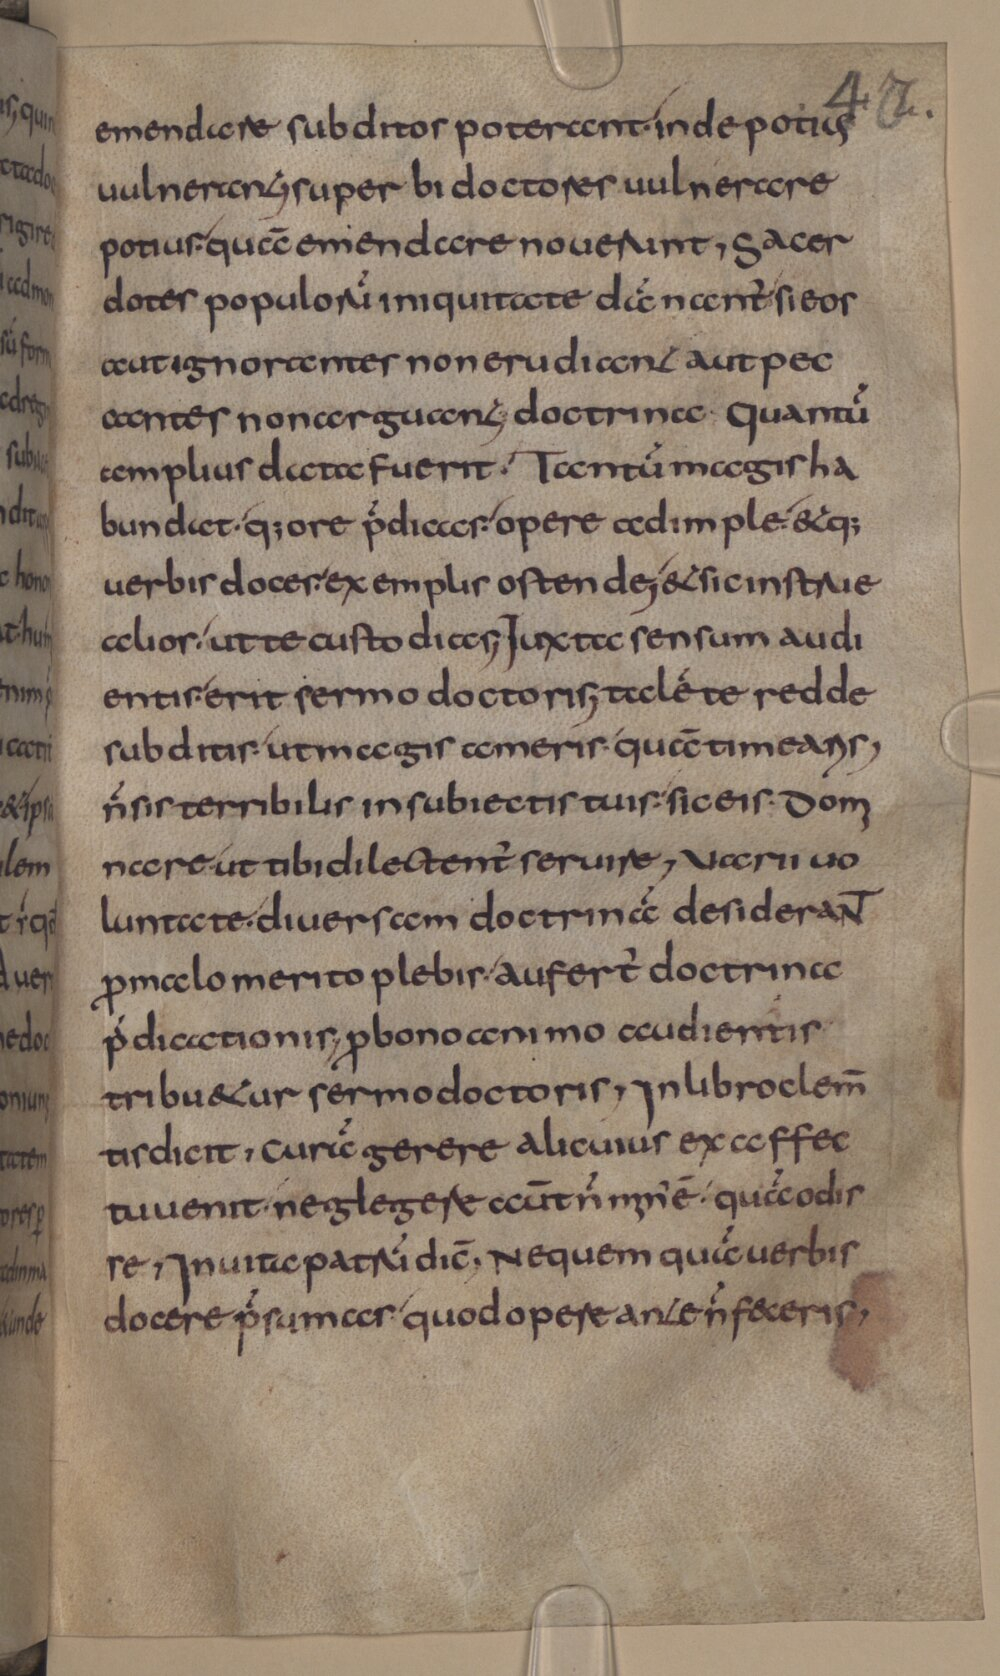 47.
emendare subditos poterant. inde potius
uulnerant; superbi doctores uulnerare
potius. quā emendare nouerunt, Sacer
dotes populorū iniquitate dānant̄. si eos
aut ignorantes non erudiant aut pec
cantes non arguant; doctrina Quantū
amplius data fuerit. Tantū magis ha
bundat. q; ore p̄dicas. opere adimple. & q;
uerbis doces. exemplis ostende; & sic instrue
alios. ut te custodias; Iuxta sensum audi
entis. erit sermo doctoris; talē te redde
subditis. ut magis ameris. quā timearis,
n̄ sis terribilis in subiectis tuis. sic eis. Dom
nare. ut tibi dilectent̄ seruire, Uarii uo
luntate. diuersam doctrinā desiderant̄
ꝓ malo merito plebis. aufert̄ doctrina
p̄dicationis, ꝓ bono animo audientis
tribu&ur sermo doctoris, In libro clem̄
tis dicit, curā gerere alicuius ex affec
tu uenit. neglegere aūt n̄ min̄ ē. quā odis
se, In uita patrū dic̄, Nequem quā uerbis
docere p̄sumas. quod opere ante n̄ feceris,